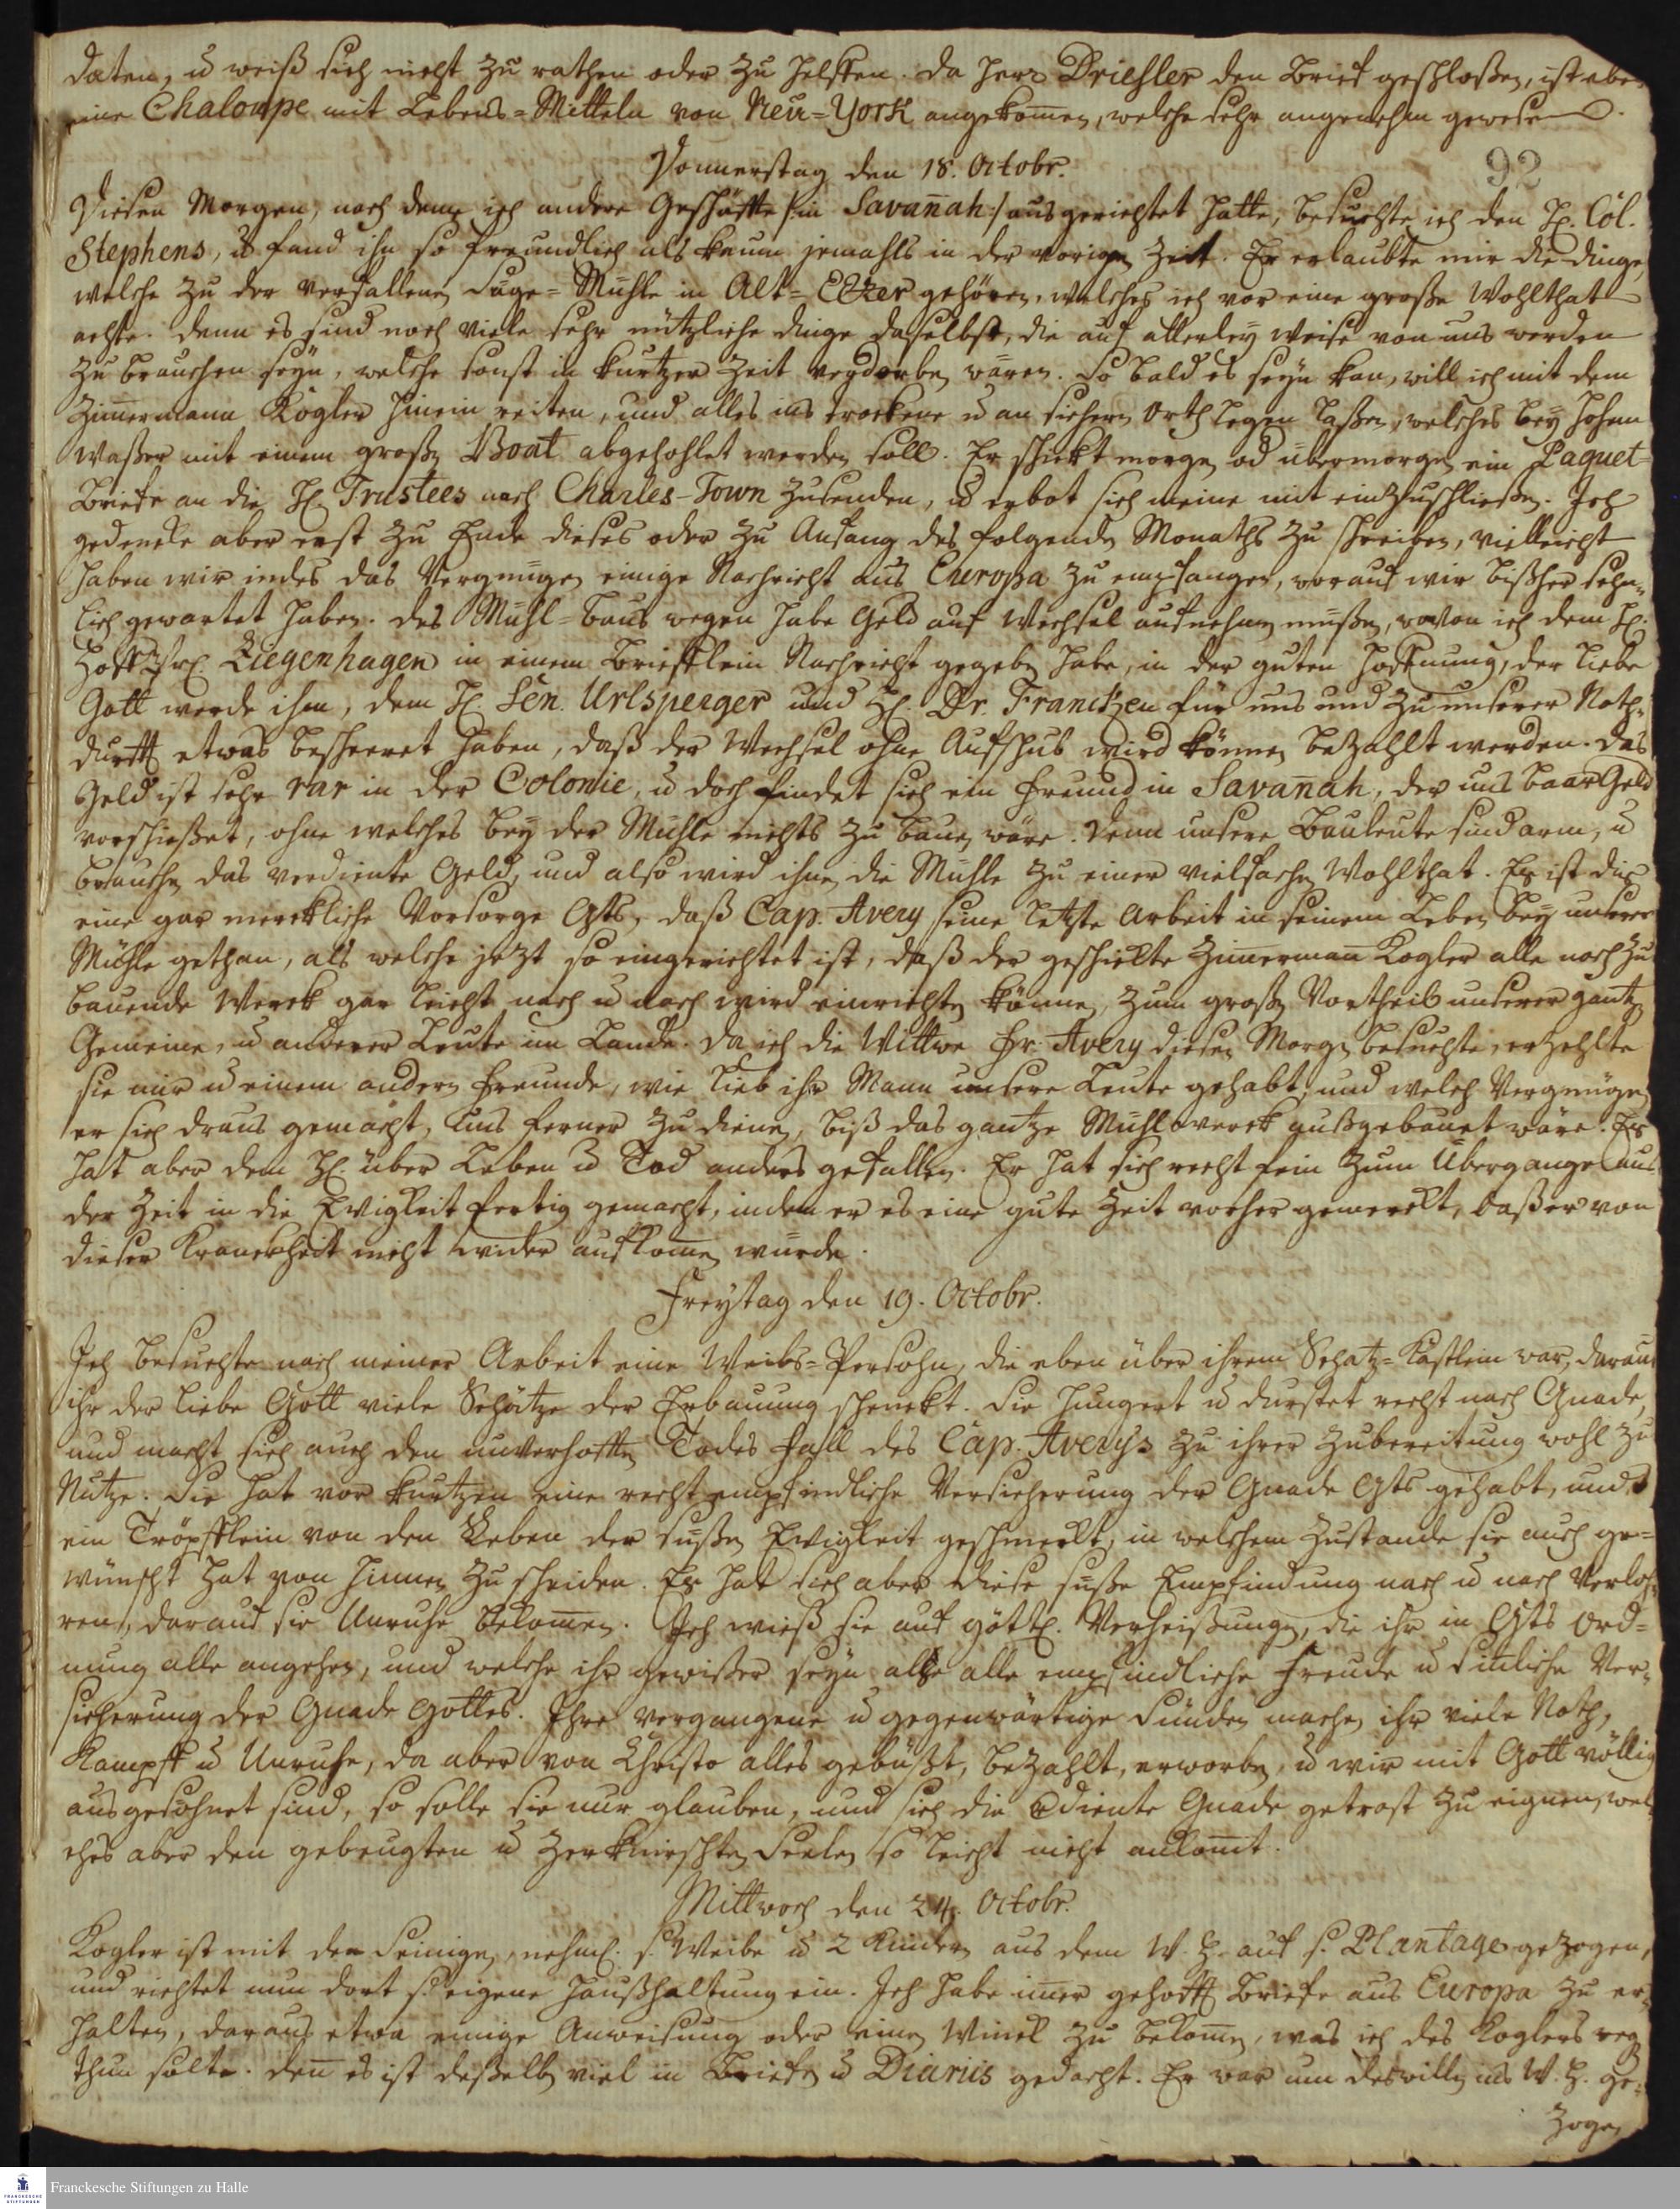 daten, u weiß sich nicht zu rathen oder zu helffen. Da Herr Driesler den Brief geschloßen, ist eben
eine Chaloupe mit Lebens=Mitteln von Neu=York angekom̄en, welche sehr angenehm gewesen.
92
Donnerstag den 18. Octobr.
Diesen Morgen, nach dem ich andere Geschäffte /: in Savan̄ah :/ ausgerichtet hatte, besuchte ich den H. Col.
Stephens, u fand ihn so freundlich als kaum jemahls in der vorigen Zeit. Er erlaubte mir die Dinge,
welche zu der verfallenen Säge=Mühle in Alt=Ebenezer gehören, welches ich vor eine große Wohlthat
achte. Denn es sind noch viele sehr nützliche Dinge daselbst, die auf allerley Weise von uns werden
zu brauchen seyn, welche sonst in kurtzer Zeit verdorben wären. So bald es seyn kan, will ich mit dem
Zim̄ermann Kogler hinein reiten, und alles ins trockene u an sichern Orth legen laßen, welches bey hohem
Waßer mit einem großen Boat abgehohlet werden soll. Er schickt morgen od übermorgen ein Paquet
Briefe an die H. Trustees nach Charles-Town zusenden, u erbot sich meine mit einzuschließen. Ich
gedencke aber erst zu Ende dieses oder zu Anfang des folgenden Monaths zu schreiben, vielleicht
haben wir indes das Vergnügen einige Nachricht aus Europa zu empfangen, worauf wir bißher sehn-
lich gewartet haben. Des Mühl=Baus wegen habe Geld auf Wechsel aufnehmen müßen, wovon ich dem H.
Hoffpr. Ziegenhagen in einem Briefflein Nachricht gegeben habe, in der guten Hoffnung, der liebe
Gott werde ihm, dem H. Sen. Urlsperger und H. Dr. Francken für uns und zu unserer Noth-
durfft etwas bescheeret haben, daß der Wechsel ohne Aufschub wird können bezahlt werden. Das
Geld ist sehr rar in der Colonie, u doch findet sich ein Freund in Savan̄ah, der uns baar Geld
vorschießet, ohne welches bey der Mühle nichts zu bauen wäre. Denn unsere Bauleute sind arm, u
brauchen das verdiente Geld, und also wird ihnen die Mühle zu einer vielfachen Wohlthat. Es ist dis
eine gar merckliche Vorsorge Gts, daß Cap. Avery seine letzte Arbeit in seinem Leben bey unserer
Mühle gethan, als welche jezt so eingerichtet ist, daß der geschickte Zim̄erman̄ Kogler alle noch zu
bauende Werck gar leicht nach u nach wird einrichten können, zum großen Vortheil unserer gantzen
Gemeine, u anderer Leute im Lande. Da ich die Wittwe Fr. Avery diesen Morgen besuchte, erzehlte
sie mir u einem andern Freunde, wie lieb ihr Mann unsere Leute gehabt, und welch Vergnügen
er sich draus gemacht, uns ferner zu dienen, biß das gantze Mühlwerck außgebauet wäre. Es
hat aber dem H. über Leben u Tod anders gefallen. Er hat sich recht fein zum Übergange aus
der Zeit in die Ewigkeit fertig gemacht, indem er es eine gute Zeit vorher gemerckt, daß er von
dieser Kranckheit nicht wider aufkom̄en würde.
Freytag den 19. Octobr.
Ich besuchte nach meiner Arbeit eine Weibs=Persohn, die eben über ihrem Schatz=Kästlein war, daraus
ihr der liebe Gott viele Schätze der Erbauung schenckt. Sie hungert u durstet recht nach Gnade,
und macht sich auch den unverhofften Todes fall des Cap. Averys zu ihrer Zubereitung wohl zu
Nutze. Sie hat vor kurtzen eine recht empfindliche Versicherung der Gnade Gts gehabt, und
ein Tröpfflein von den Leben der süßen Ewigkeit geschmeckt, in welchem Zustande sie auch ge=
wünscht hat von hinnen zu scheiden. Es hat sich aber diese süße Empfindung nach u nach verloh-
ren, darauf sie Unruhe bekom̄en. Ich wieß sie auf göttl. Verheißungen, die ihr in Gts Ord=
nung alle angehen, und welche ihr gewißer seyn als alle empfindliche Freude u sin̄liche Ver-
sicherung der Gnade Gottes. Ihre vergangene u gegenwärtige Sünden machen ihr viele Noth,
Kampff u Unruhe, da aber von Christo alles gebüßt, bezahlt, erworben, u wir mit Gott völlig
ausgesöhnet sind, so solle sie nur glauben, und sich die verdiente Gnade getrost zu eignen, wel
ches aber den gebeugten u zerknirschten Seelen so leicht nicht ankom̄t.
Mittwoch den 24. Octobr.
Kogler ist mit den Seinigen, nehml. s. Weibe u 2 Kindern aus dem W. H. auf s. Plantage gezogen,
und richtet nun dort s. eigene Haußhaltung ein. Ich habe im̄er gehofft Briefe aus Europa zu er-
halten, daraus etwa einige Anweisung oder einen Winck zu bekom̄en, was ich des Koglers weg
thun solte. Den̄ es ist deßelben viel in Briefen u Diariis gedacht. Er war um deswillen ins W. H. ge-
zogen,
Franckesche Stiftungen zu Halle